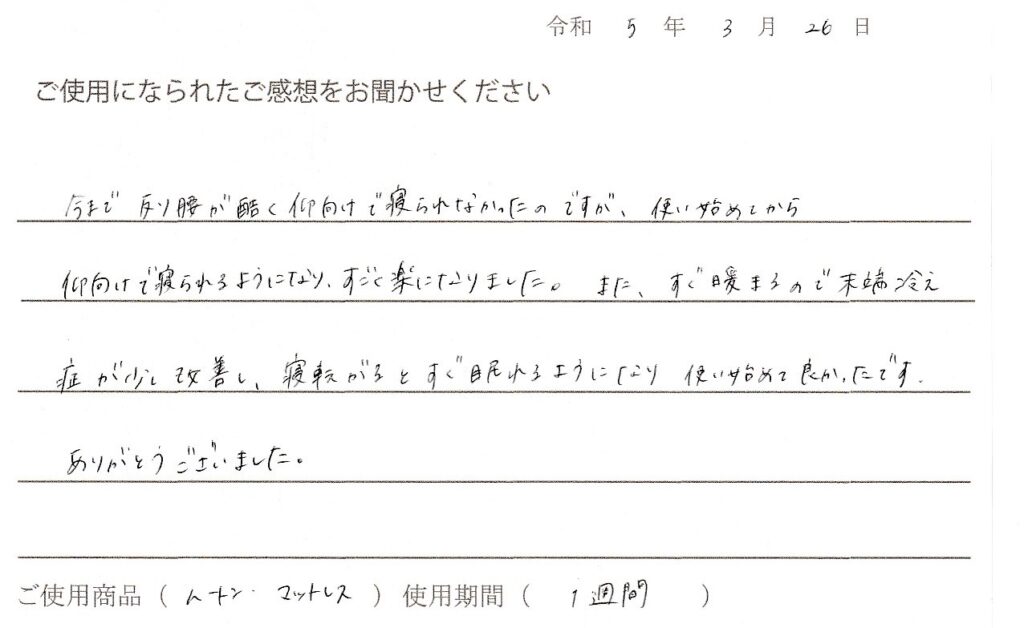 令和 5 年 3 月 26 日
ご使用になられたご感想をお聞かせください
今まで 反り腰が酷く仰向けで寝られなかったのですが、使い始めてから
仰向けで寝られるようになり、すごく楽になりました。また、すぐ暖まるので末端冷え
症が少し改善し、寝転がるとすぐ眠れるようになり 使い始めて良かったです.
ありがとうございました。
ご使用商品（ ムートン・マットレス ） 使用期間（ 1週間 ）